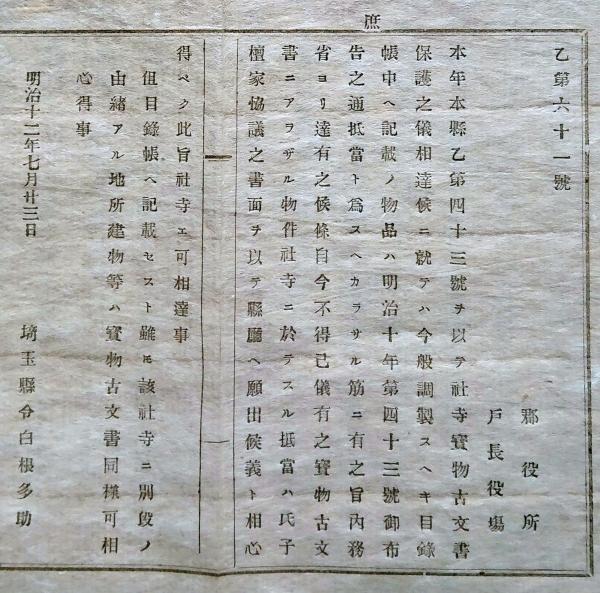 庶
乙第六十一號
郡役所
戸長役塲
本年本縣乙第四十三號ヲ以テ社寺寳物古文書
保護之儀相達候ニ就テハ今般調製スヘキ目錄
帳中ヘ記載ノ物品ハ明治十年第四十三號御布
告之通抵當ト爲スヘカラサル筋ニ有之旨內務
省ヨリ達有之候條自今不得已儀有之寳物古文
書ニアラザル物件社寺ニ於テスル抵當ハ氏子
檀家協議之書面ヲ以テ縣廳ヘ願出候義ト相心
得ベク此旨社寺エ可相達事
但目錄帳ヘ記載セスト雖モ該社寺ニ別段ノ
由緖アル地所建物等ハ寳物古文書同樣可相
心得事
明治十二年七月廿三日
埼玉縣令白根多助